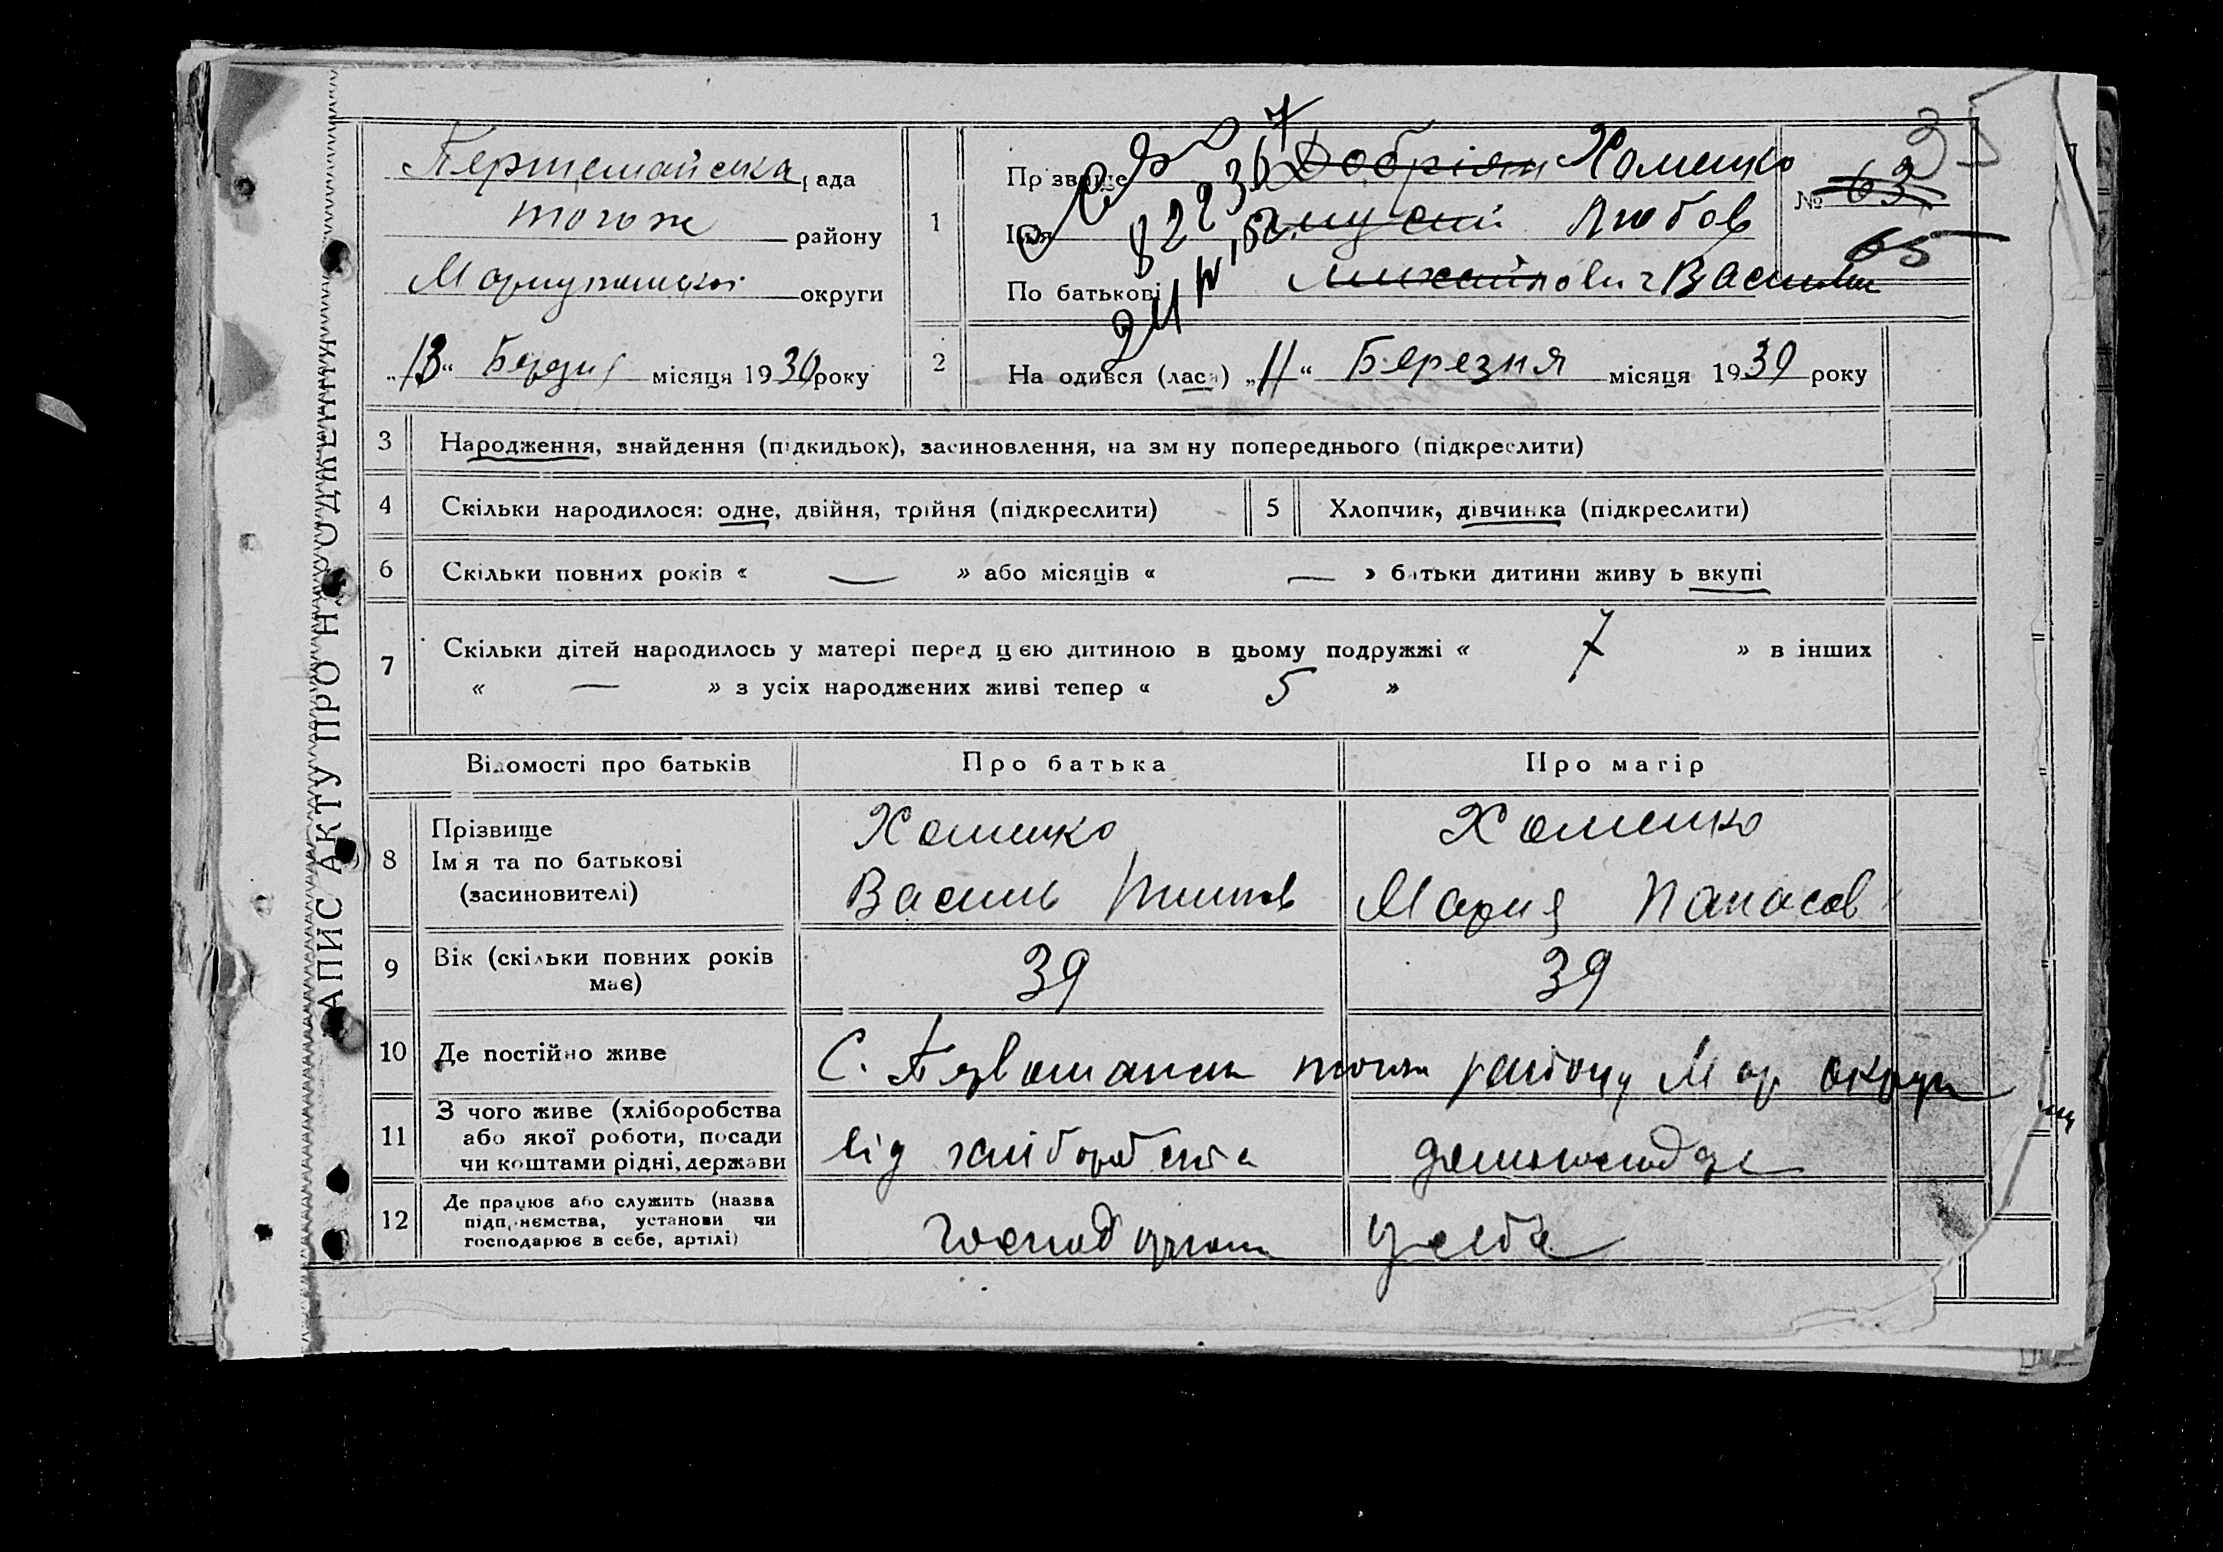 ЗАПИС АКТУ ПРО НАРОДЖЕННЯ
Першемайська рада
тогож району
Маріупільської округи
„13“ Березня місяця 1930 року
1
Прізвище Добріян Хоменко
Ім'я Любов
По батькові Михайлович Васильев
№ 63
65
2
На одився (лася) „11“ Березня місяця 1930 року
3 Народження, знайдення (підкидьок), засиновлення, на зм ну попереднього (підкреслити)
4 Скільки народилося: одне, двійня, трійня (підкреслити) 5 Хлопчик, дівчинка (підкреслити)
6 Скільки повних років « — » або місяців « — » батьки дитини живу ь вкупі
7 Скільки дітей народилось у матері перед цією дитиною в цьому подружжі « 7 » в інших
« — » з усіх народжених живі тепер « 5 »
Відомості про батьків Про батька Про матір
8 Прізвище Хоменко Хоменко
Ім'я та по батькові
(засиновителі) Василь Пилипов Мария Панасов
9 Вік (скільки повних років має) 39 39
10 Де постійно живе С. Первомайськ тогож району Мар округи
11 З чого живе (хліборобства
або якої роботи, посади
чи коштами рідні, держави від хліборобства домогосподарка
12 Де працює або служить (назва
підприємства, установи чи
господарює в себе, артілі) господарює у себе